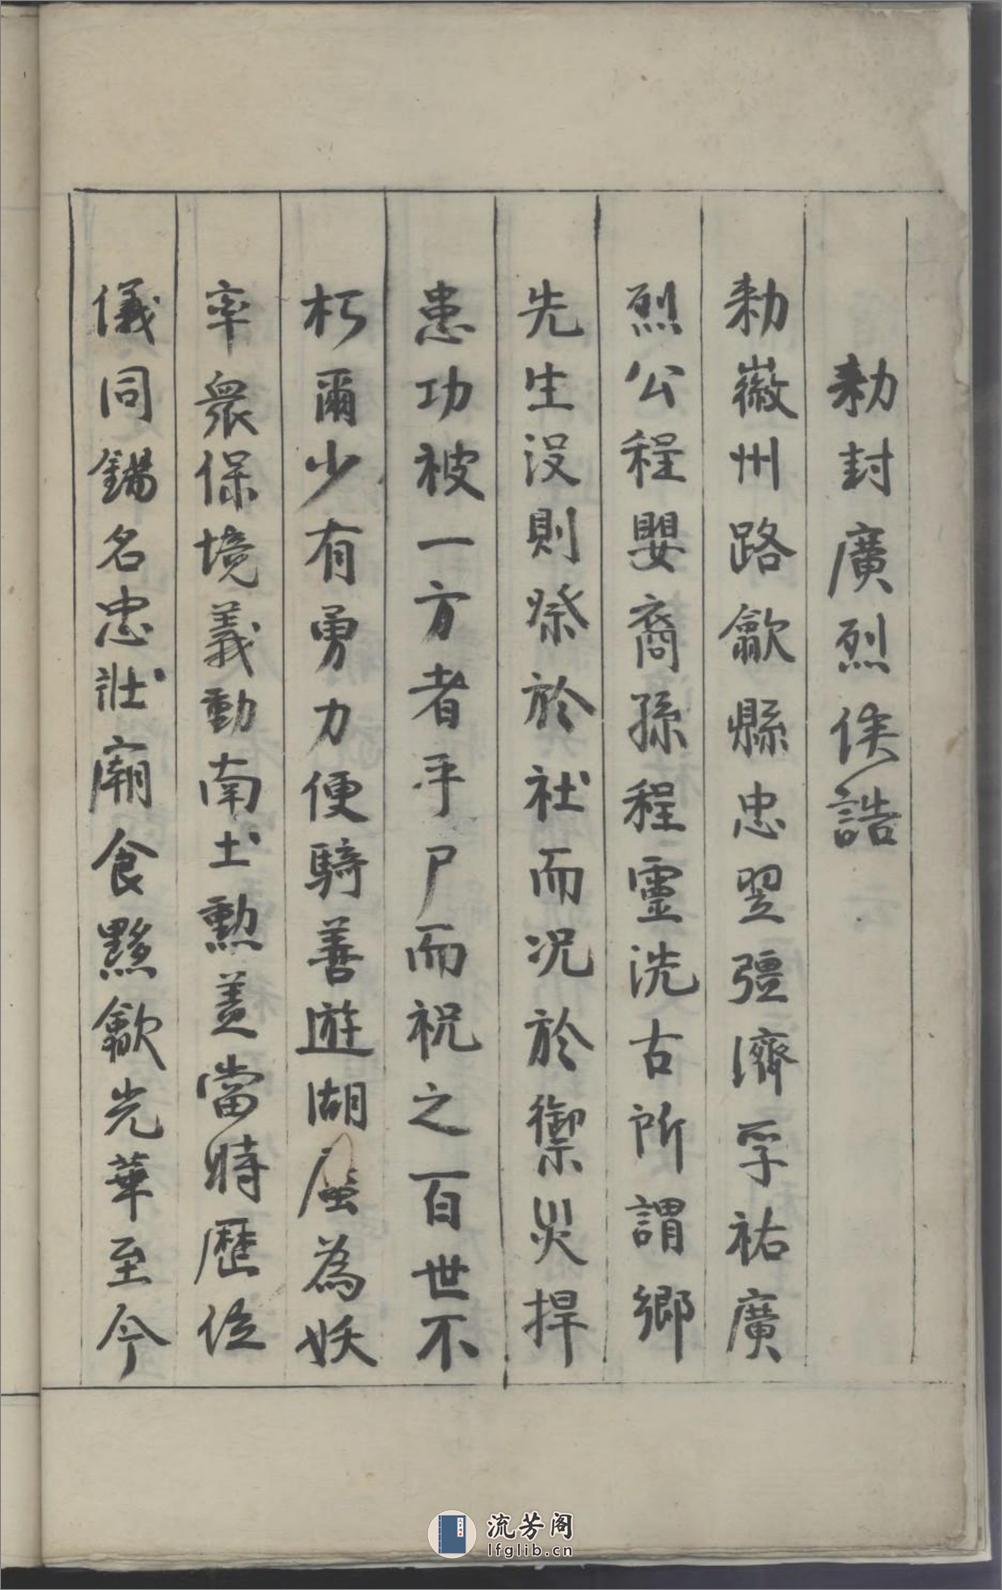 勅封廣烈侯誥
勅徽州路歙縣忠翌彊濟孚祐廣
烈公程嬰裔孫程靈洗古所謂鄉
先生没則祭於社而况於禦災捍
患功被一方者乎尸而祝之百世不
朽爾少有勇力便騎善遊湖蜃為妖
率衆保境義動南土勲盖當時歷位
儀同錫名忠壯廟食黟歙光華至今
流芳阁
lfglib.cn